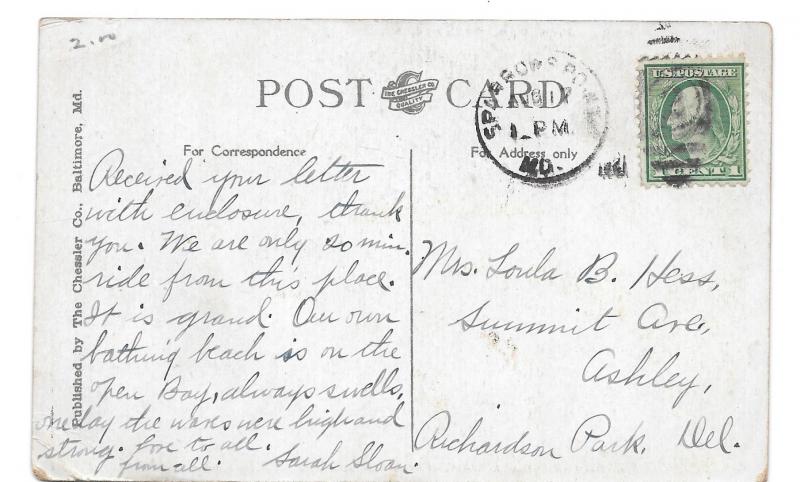 2.00
POST CARD
THE CHESSLER CO.
QUALITY
SPARROWS POINT
AUG 11
1 - PM
MD.
U.S. POSTAGE
1 CENT 1
Published by The Chessler Co., Baltimore, Md.
For Correspondence
For Address only
Received your letter
with enclosure, thank
you. We are only 20 min.
ride from this place.
It is grand. Our own
bathing beach is on the
open Bay, always swells,
one day the waves were high and
strong. Love to all.
from all. Sarah Sloan.
Mrs. Loula B. Hess,
Summit Ave,
Ashley,
Richardson Park, Del.